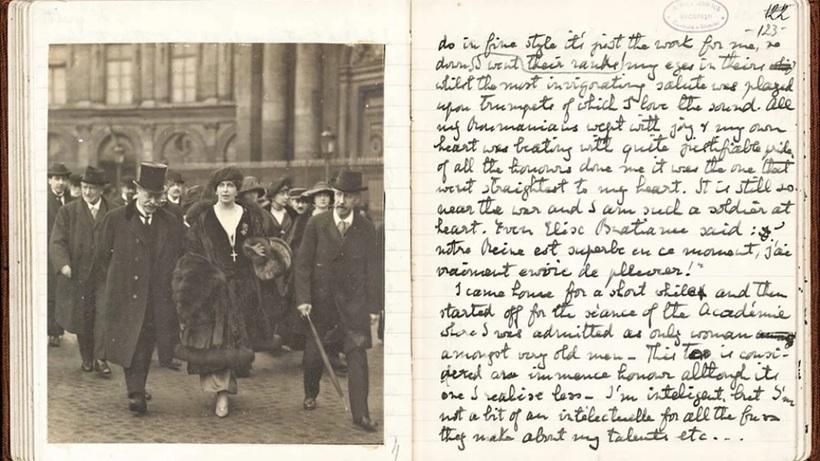 122
-123-
do in fine style it's just the work for me, so
down I went their ranks my eyes in theirs
whilst the most invigorating salute was played
upon trumpets of which I love the sound. All
my Roumanians wept with joy & my own
heart was beating with quite justifiable pride,
of all the honours done me it was the one that
went straightest to my heart. It is still so
near the war and I am such a soldier at
heart. Even Elise Bratianu said: "
notre Reine est superbe en ce moment, j'ai
vraiment envie de pleurer!"
I came home for a short while and then
started off for the séance of the Académie
where I was admitted as only woman
amongst very old men - This too is consi-
dered an immence honour although its
one I realise less - I'm inteligent, but I'm
not a bit of an intelectuelle for all the fuss
they make about my talents etc...